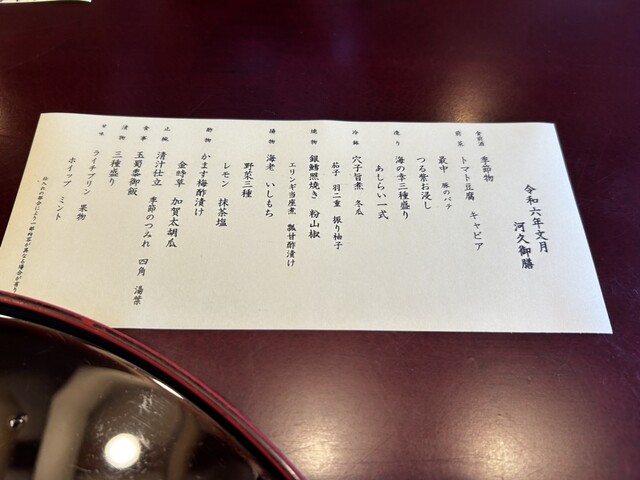 令和六年文月
河久御膳
食前酒 季節物
前菜 トマト豆腐 キャビア
最中 豚のパテ
つる紫お浸し
造り 海の幸三種盛り
あしらい一式
冷鉢 穴子旨煮 冬瓜
茄子 羽二重 振り柚子
焼物 銀鱈照焼き 粉山椒
エリンギ当座煮 瓢甘酢漬け
揚物 海老 いしもち
野菜三種
レモン 抹茶塩
酢物 かます梅酢漬け
金時草 加賀太胡瓜
止椀 清汁仕立 季節のつみれ 四角 湯葉
食事 玉蜀黍御飯
漬物 三種盛り
甘味 ライチプリン 果物
ホイップ ミント
仕入れの都合により一部内容が異なる場合が